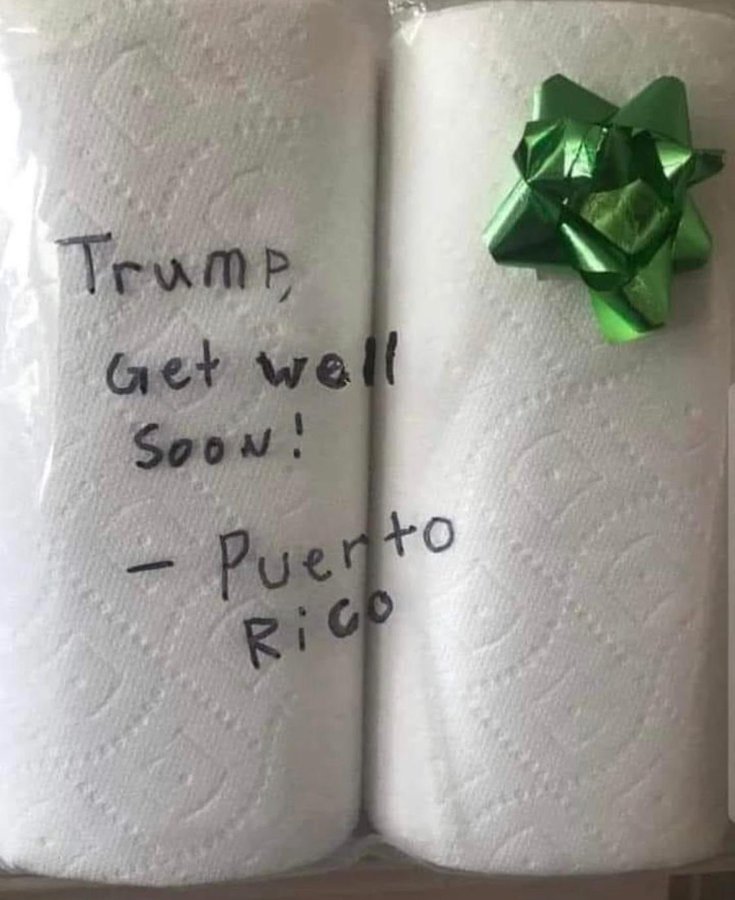 Trump,
Get well
Soon!
- Puerto
Rico